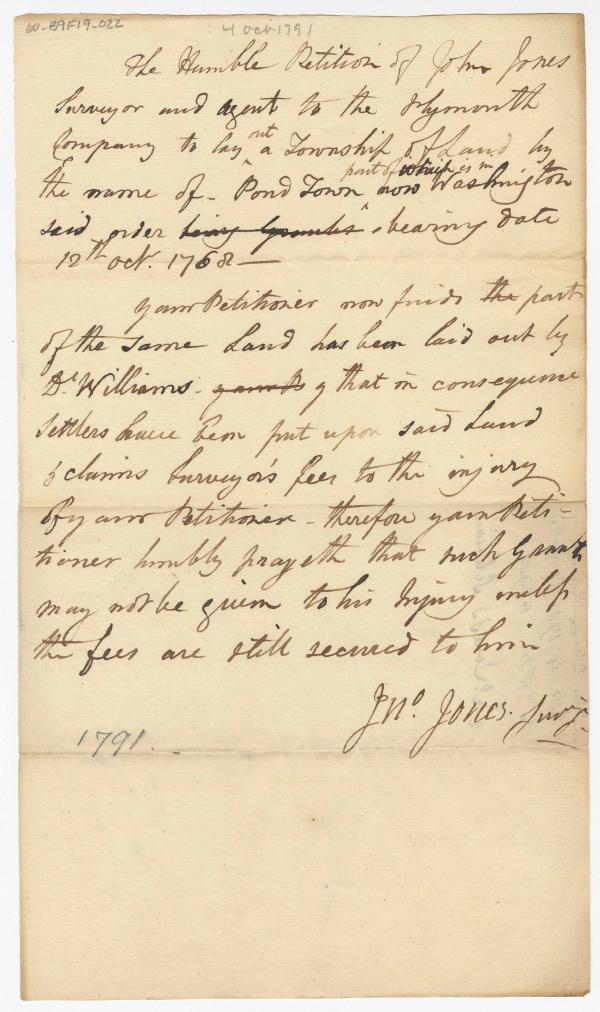 60-B9F19-022
4 Oct 1791
The Humble Petition of John Jones
Surveyor and agent to the Plymouth
Company to lay out a Township of Land by
the name of - "Pond Town part of which is in now Washington
said order being bearing date
12th Oct. 1768 —
your Petitioner now finds the part
of the same Land has been laid out by
Dr Williams - & that in consequence
settlers have been put upon said Land
& claims Surveyor's fees to the injury
of your Petitioner - therefore your Peti-
tioner humbly prayeth that such Grants
may not be given to his Injury unless
the fees are still secured to him
Jno. Jones. Survey
1791.